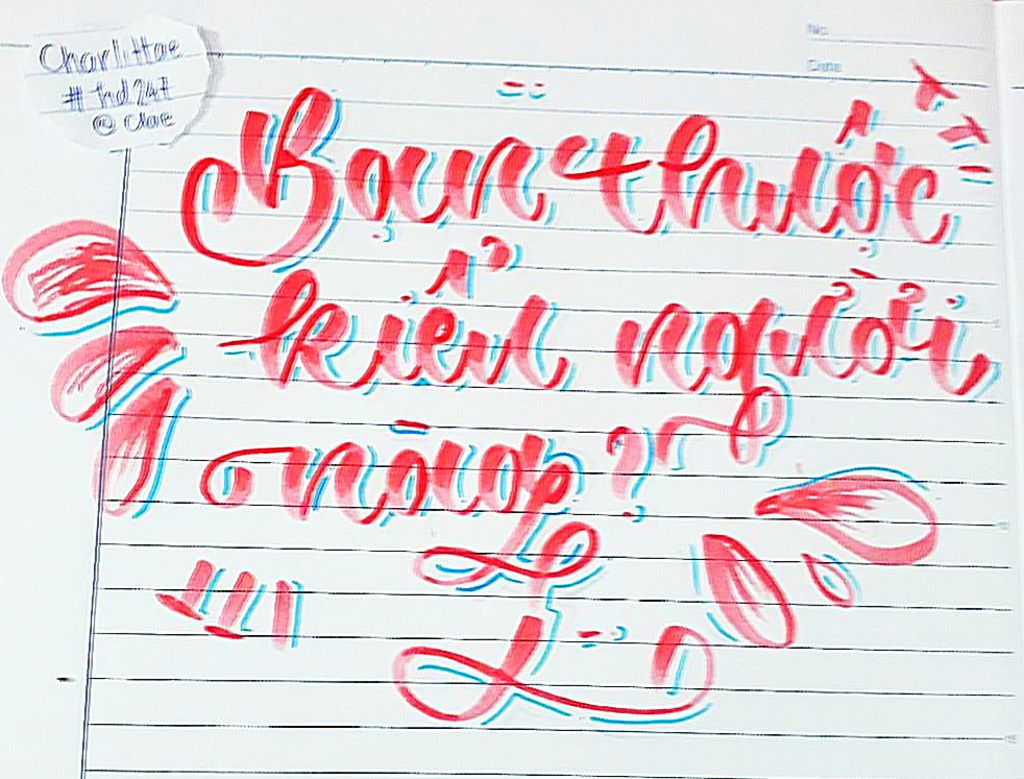 Charlittae
# hd247
@ clae
No.
Date
Bạn thuộc
kiểu người
nào?